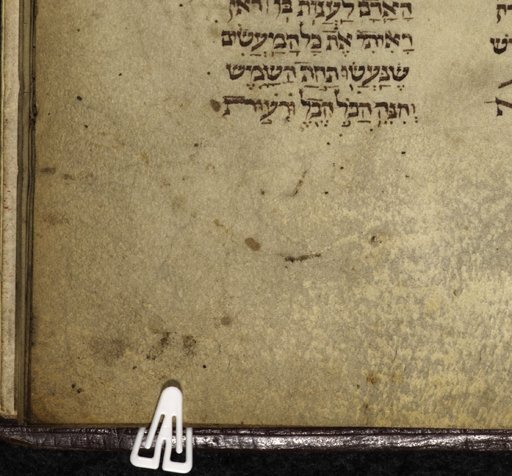 האדם לענות בו ראי
ראיתי את כל המעשים
שנעשו תחת השמש
והנה הכל הבל ורעות